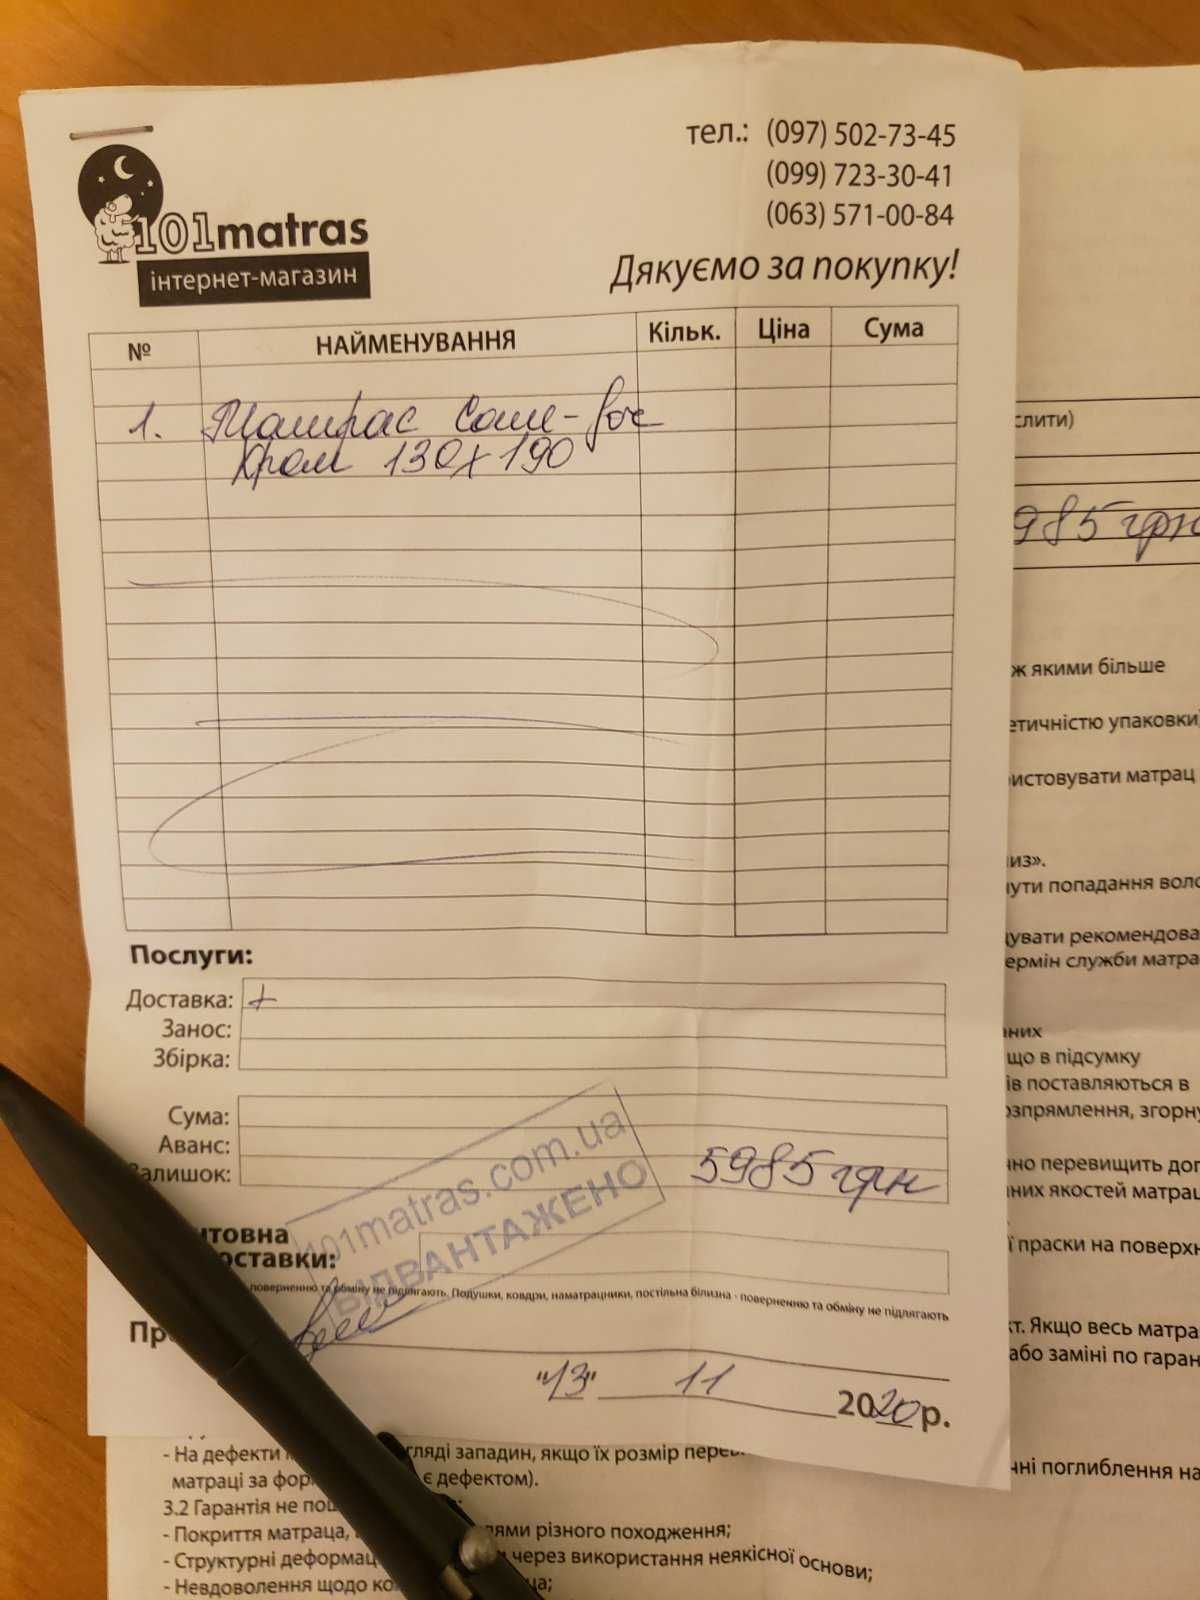 тел.: (097) 502-73-45
(099) 723-30-41
(063) 571-00-84
101matras
інтернет-магазин
Дякуємо за покупку!
№ НАЙМЕНУВАННЯ Кільк. Ціна Сума
1. Матрас Сош-
Хром 130х190
Послуги:
Доставка: +
Занос:
Збірка:
Сума:
Аванс:
Залишок: 5985 грн
101matras.com.ua
ВІДВАНТАЖЕНО
штовна
оставки:
поверненню та обміну не підлягають. Подушки, ковдри, наматрацники, постільна білизна - поверненню та обміну не підлягають
Пр
"13" 11 2020р.
слити)
985 грн
ж якими більше
етичністю упаковки)
ристовувати матрац
из».
нути попадання воло
увати рекомендова
ермін служби матра
аних
що в підсумку
ів поставляються в
озпрямлення, згорну
чно перевищить доп
них якостей матрац
ї праски на поверхн
кт. Якщо весь матра
або заміні по гаран
чні поглиблення на
- На дефекти гляді западин, якщо їх розмір перев
матраці за фор є дефектом).
3.2 Гарантія не пош
- Покриття матраца, лями різного походження;
- Структурні деформац и через використання неякісної основи;
- Невдоволення щодо ко ца;